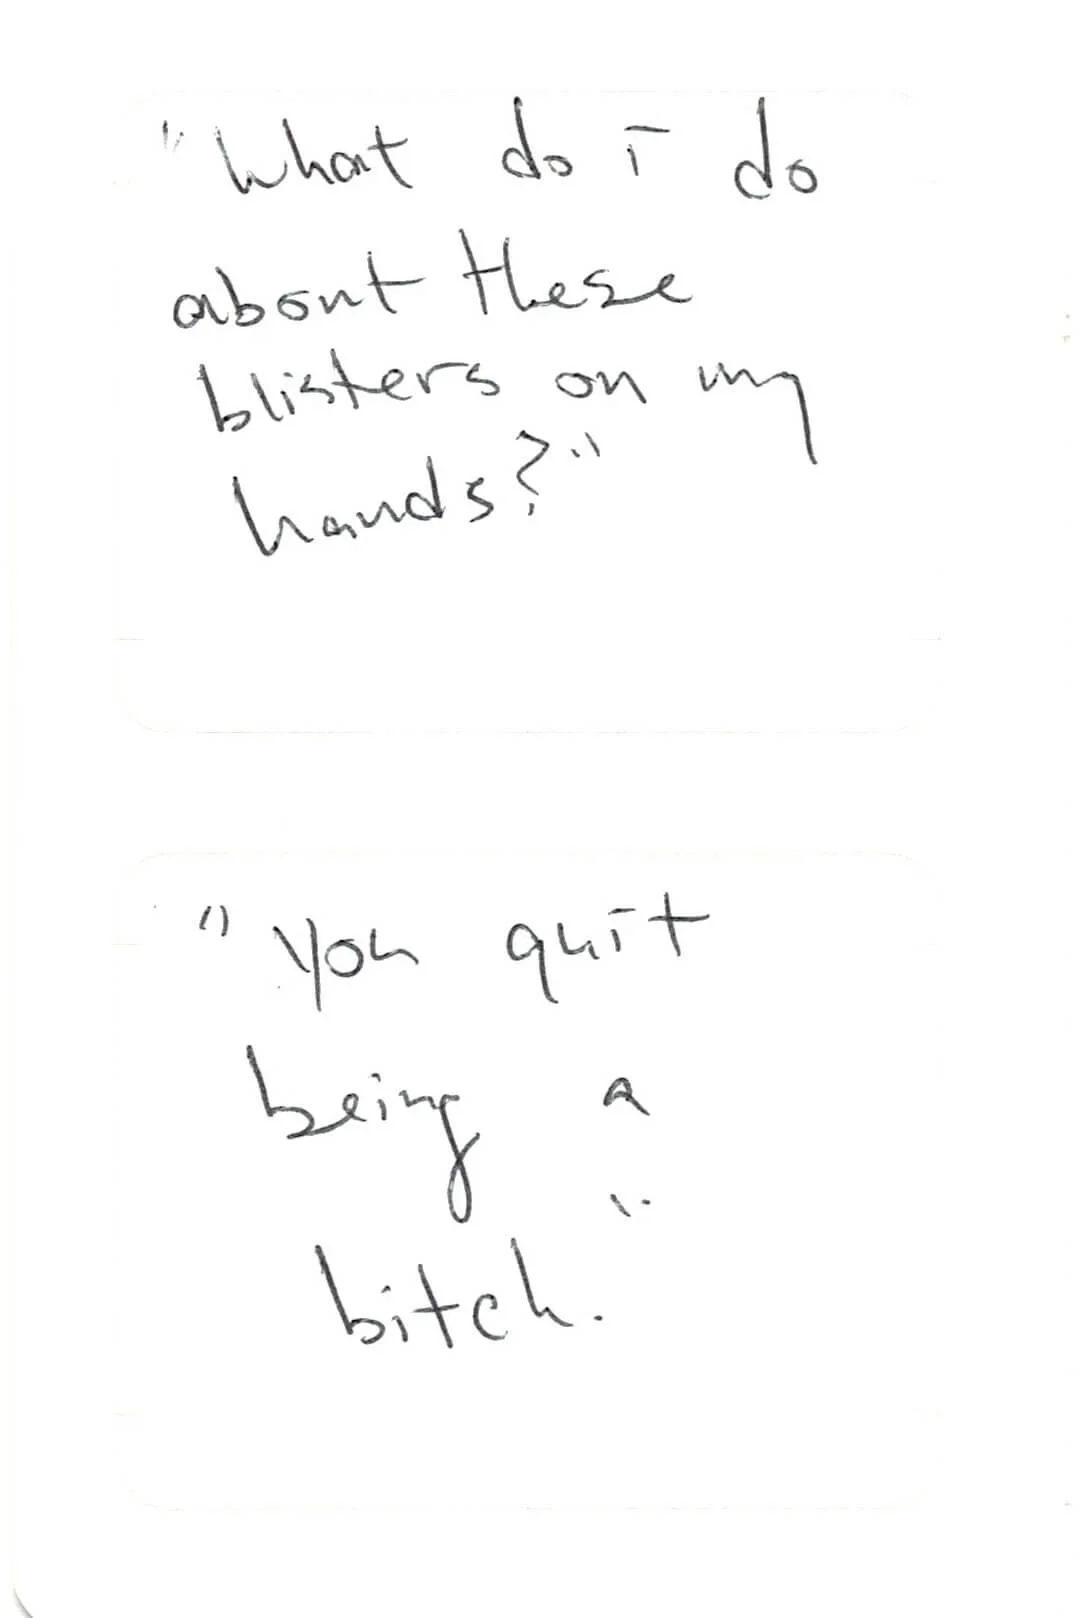 "What do i do
about these
blisters on my
hands?"
"You quit
being a
bitch."